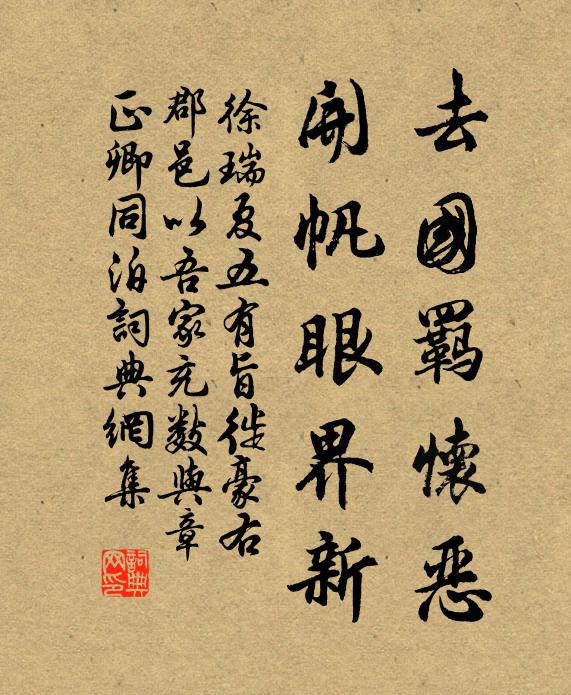 去國羈懷惡
開帆眼界新
徐瑞夏五有旨徙豪右
郡邑以吾家充數與章
正卿同泊詞典網集
詞典网印